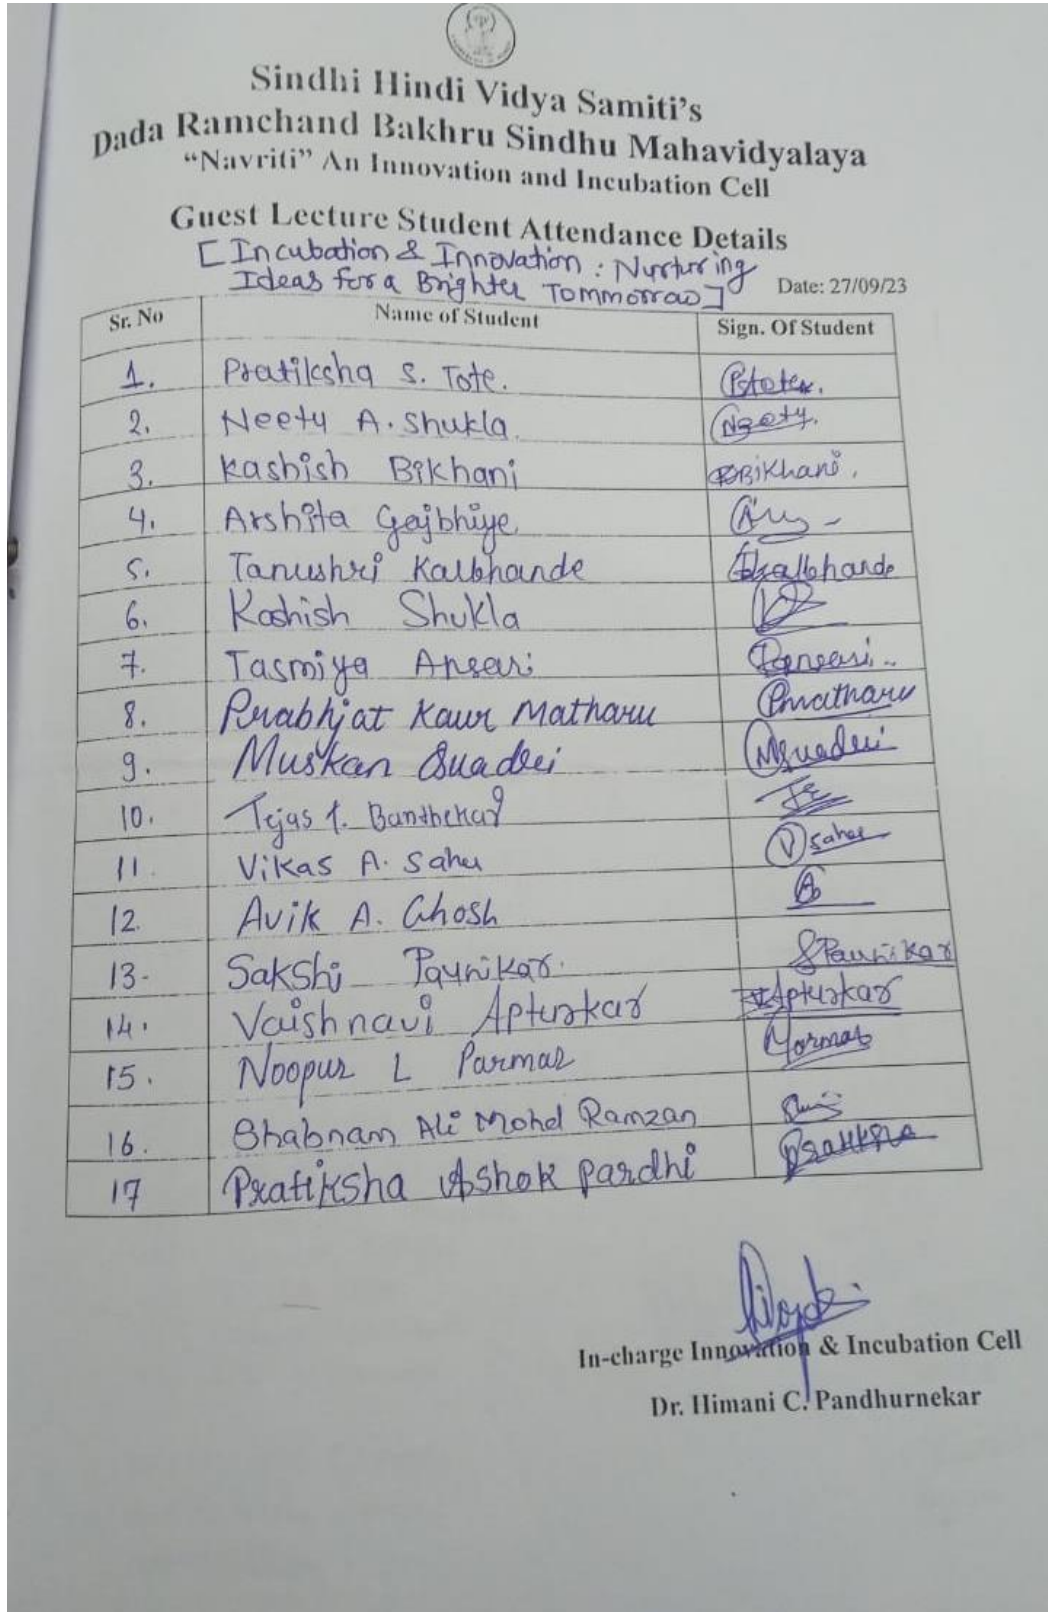 Sindhi Hindi Vidya Samiti's
Dada Ramchand Bakhru Sindhu Mahavidyalaya
“Navriti” An Innovation and Incubation Cell
Guest Lecture Student Attendance Details
[Incubation & Innovation : Nurturing
Ideas for a Brighter Tommorrow]
Date: 27/09/23
Sr. No Name of Student Sign. Of Student
1. Pratiksha S. Tote.
2. Neety A. Shukla. Neety.
3. Kashish Bikhani Bikhani.
4. Arshita Gajbhiye
5. Tanushri Kalbhande Kalbhande
6. Kashish Shukla
7. Tasmiya Ansari
8. Prabhjat Kaur Matharu Pmatharu
9. Muskan Quadri
10. Tejas
11. Vikas A. Sahu V sahu
12. Avik A. Ghosh
13- Sakshi Paunikar. SPaunikar
14. Vaishnavi Apturkar Apturkar
15. Noopur L Parmar
16. Shabnam Ali Mohd Ramzan
17 Pratiksha Ashok Pardhi
In-charge Innovation & Incubation Cell
Dr. Himani C. Pandhurnekar